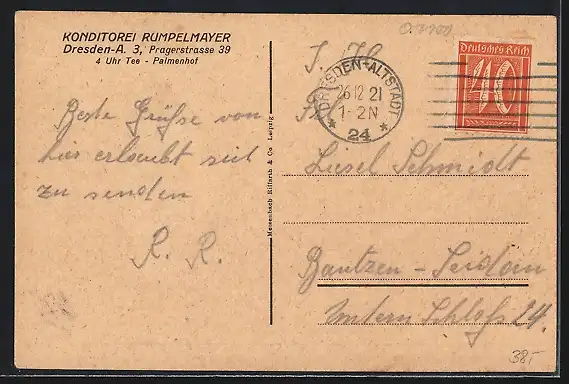 KONDITOREI RUMPELMAYER
Dresden-A. 3, Pragerstrasse 39
4 Uhr Tee - Palmenhof
Beste Grüße von
hier erlaubt sich
zu senden
R. R.
Meissenbach Riffarth & Co. Leipzig
Deutsches Reich
40
DRESDEN-ALTSTADT
26 12 21
1-2N
* 24 *
Liesel Schmidt
Bautzen - Seidau
Untern Schloß 24.
38.-